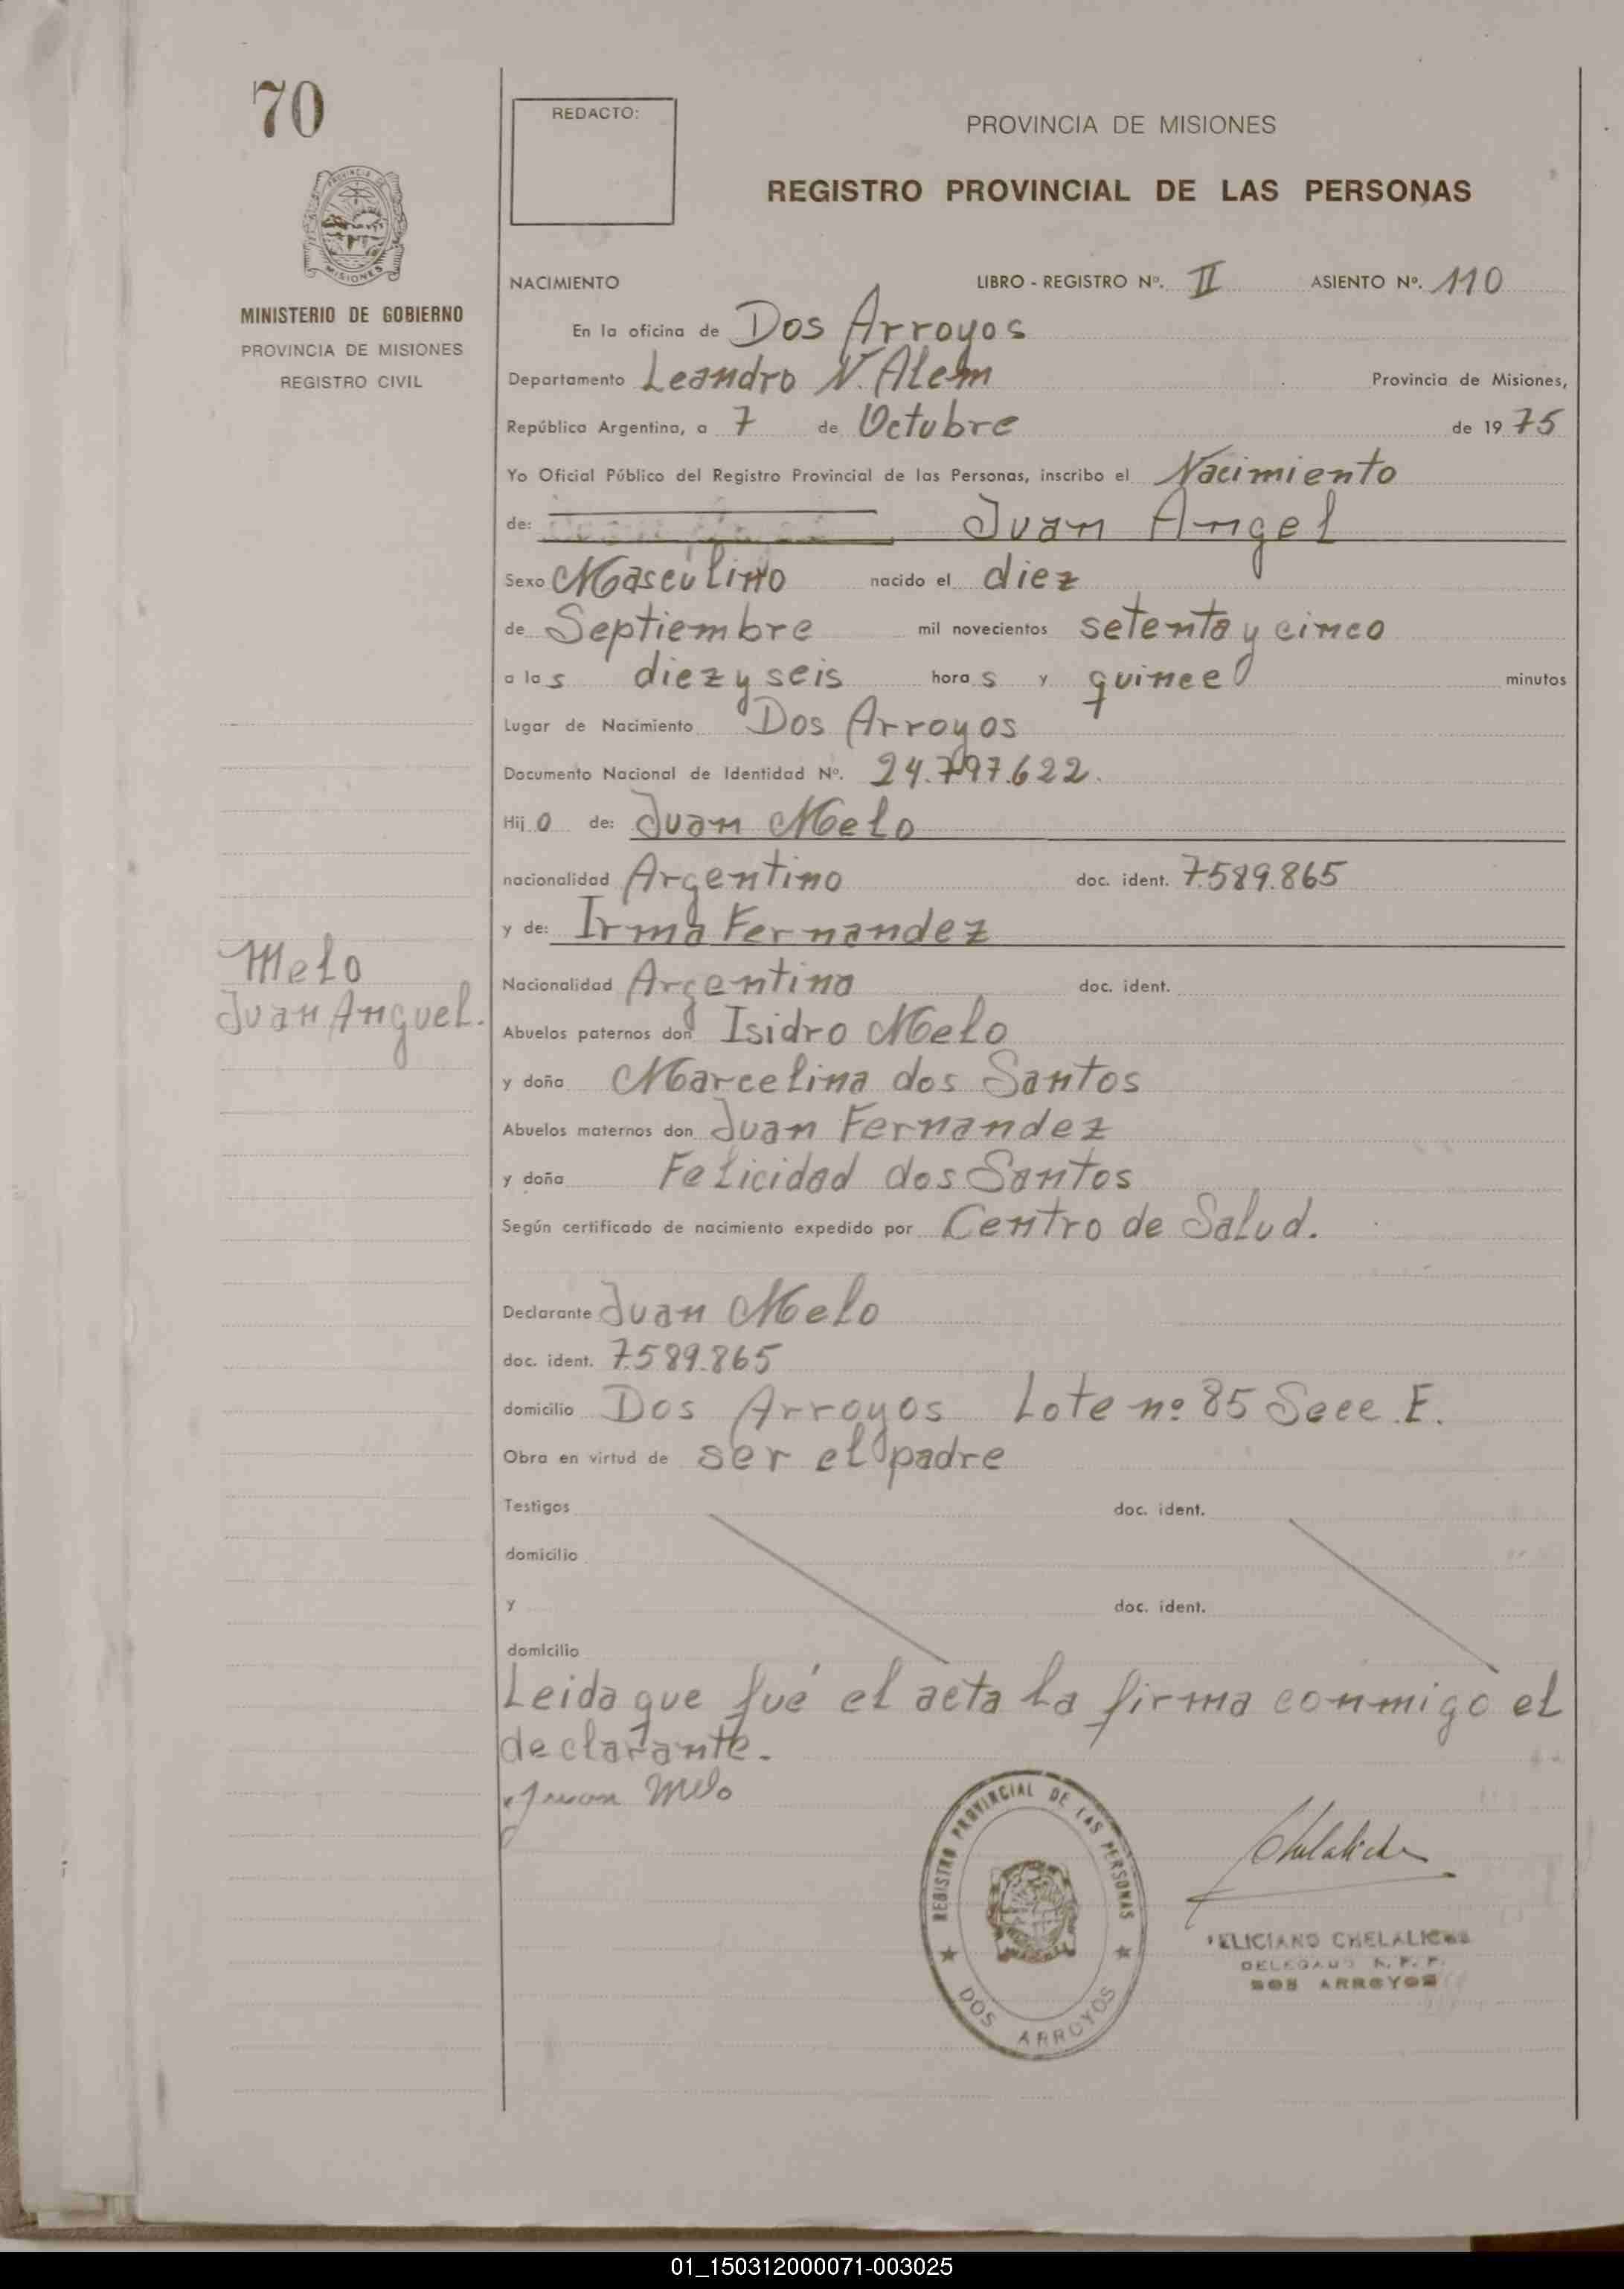 70
REDACTO:
PROVINCIA DE MISIONES
REGISTRO PROVINCIAL DE LAS PERSONAS
PROVINCIA DE
MISIONES
MINISTERIO DE GOBIERNO
PROVINCIA DE MISIONES
REGISTRO CIVIL
NACIMIENTO LIBRO - REGISTRO Nº. II ASIENTO Nº. 110
En la oficina de Dos Arroyos
Departamento Leandro N. Alem Provincia de Misiones,
República Argentina, a 7 de Octubre de 19 75
Yo Oficial Público del Registro Provincial de las Personas, inscribo el Nacimiento
de: Juan Angel
Sexo Masculino nacido el diez
de Septiembre mil novecientos setenta y cinco
a las diez y seis horas y quince minutos
Lugar de Nacimiento Dos Arroyos
Documento Nacional de Identidad Nº. 24.797.622.
Hijo de: Juan Melo
nacionalidad Argentino doc. ident. 7.589.865
y de: Irma Fernandez
Nacionalidad Argentina doc. ident.
Abuelos paternos don Isidro Melo
y doña Marcelina dos Santos
Abuelos maternos don Juan Fernandez
y doña Felicidad dos Santos
Según certificado de nacimiento expedido por Centro de Salud.
Declarante Juan Melo
doc. ident. 7.589.865
domicilio Dos Arroyos Lote nº 85 Secc. E.
Obra en virtud de ser el padre
Testigos doc. ident.
domicilio
y doc. ident.
domicilio
Leida que fué el acta la firma conmigo el
declarante.
Juan Melo
Melo
Juan Anguel.
REGISTRO PROVINCIAL DE LAS PERSONAS
DOS ARROYOS
Chelaliche
FELICIANO CHELALICHE
DELEGADO R. P. P.
DOS ARROYOS
01_150312000071-003025